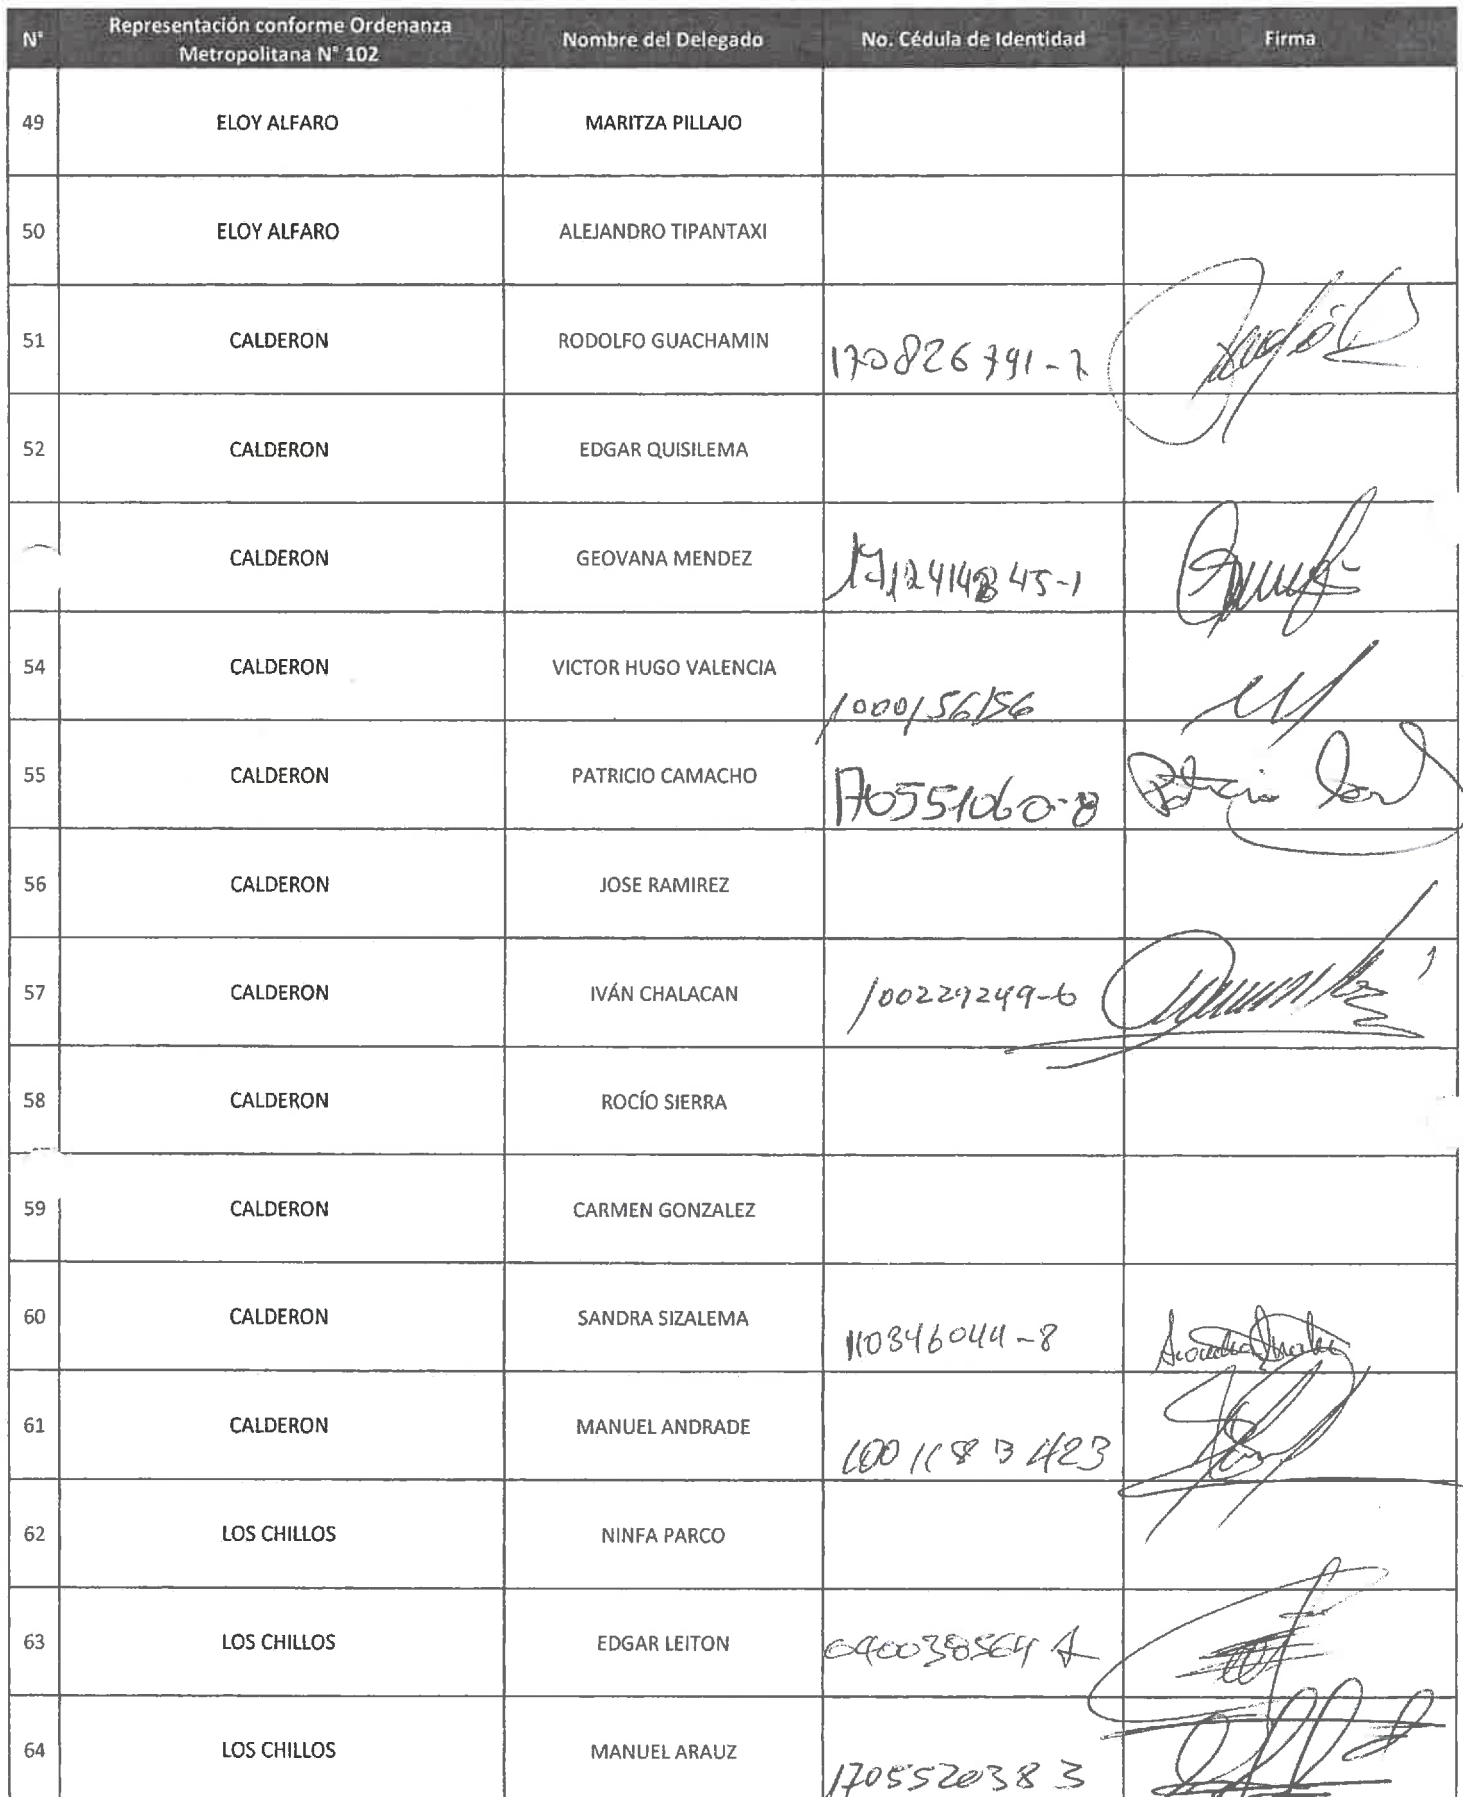 N° Representación conforme Ordenanza Metropolitana N° 102 Nombre del Delegado No. Cédula de Identidad Firma
49 ELOY ALFARO MARITZA PILLAJO
50 ELOY ALFARO ALEJANDRO TIPANTAXI
51 CALDERON RODOLFO GUACHAMIN 170826791-7
52 CALDERON EDGAR QUISILEMA
CALDERON GEOVANA MENDEZ
54 CALDERON VICTOR HUGO VALENCIA 1000156156
55 CALDERON PATRICIO CAMACHO 170551060-8
56 CALDERON JOSE RAMIREZ
57 CALDERON IVÁN CHALACAN 100229249-6
58 CALDERON ROCÍO SIERRA
59 CALDERON CARMEN GONZALEZ
60 CALDERON SANDRA SIZALEMA 110346044-8
61 CALDERON MANUEL ANDRADE
62 LOS CHILLOS NINFA PARCO
63 LOS CHILLOS EDGAR LEITON
64 LOS CHILLOS MANUEL ARAUZ 1705520383